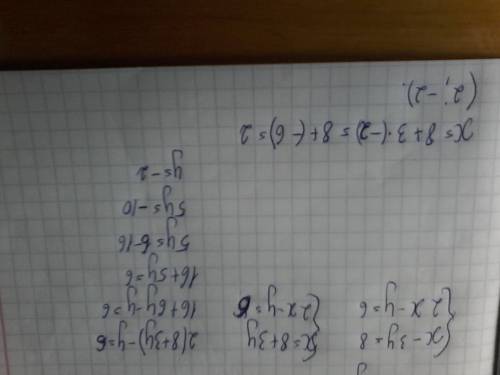 {x-3y=8 {x=8+3y 2(8+3y)-y=6
{2x-y=6 {2x-y=6 16+6y-y=6
16+5y=6
5y=6-16
5y=-10
y=-2
x=8+3·(-2)=8+(-6)=2
(2; -2).